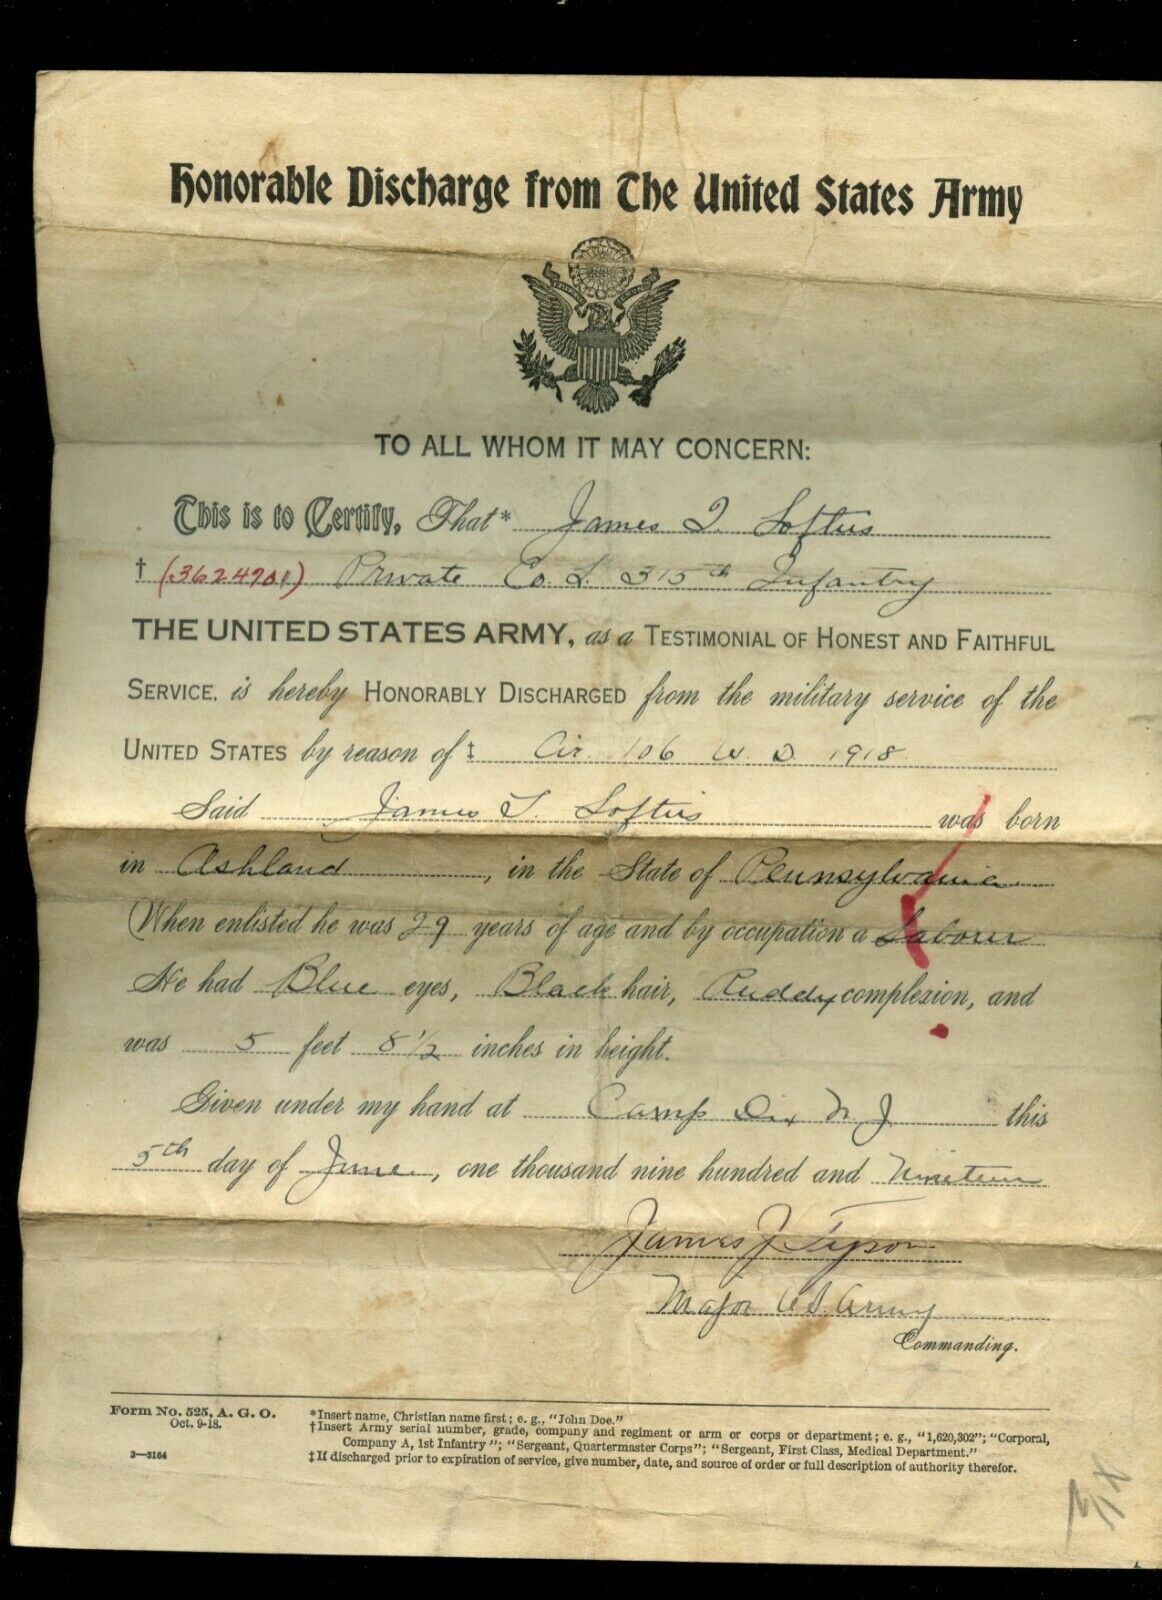 Honorable Discharge from The United States Army
TO ALL WHOM IT MAY CONCERN:
This is to Certify, That* James T. Loftus
† (3624901) Private Co. L. 315th Infantry
THE UNITED STATES ARMY, as a TESTIMONIAL OF HONEST AND FAITHFUL
SERVICE, is hereby HONORABLY DISCHARGED from the military service of the
UNITED STATES by reason of ‡ Cir. 106 W. D. 1918
Said James T. Loftus was born
in Ashland, in the State of Pennsylvania
When enlisted he was 29 years of age and by occupation a Laborer
He had Blue eyes, Black hair, Ruddy complexion, and
was 5 feet 8 1/2 inches in height.
Given under my hand at Camp Dix N. J. this
5th day of June, one thousand nine hundred and Nineteen
James J Tyson
Major U.S. Army
Commanding.
Form No. 525, A. G. O.
Oct. 9-18.
3—3164
*Insert name, Christian name first; e. g., "John Doe."
†Insert Army serial number, grade, company and regiment or arm or corps or department; e. g., "1,620,302"; "Corporal,
Company A, 1st Infantry"; "Sergeant, Quartermaster Corps"; "Sergeant, First Class, Medical Department."
‡If discharged prior to expiration of service, give number, date, and source of order or full description of authority therefor.